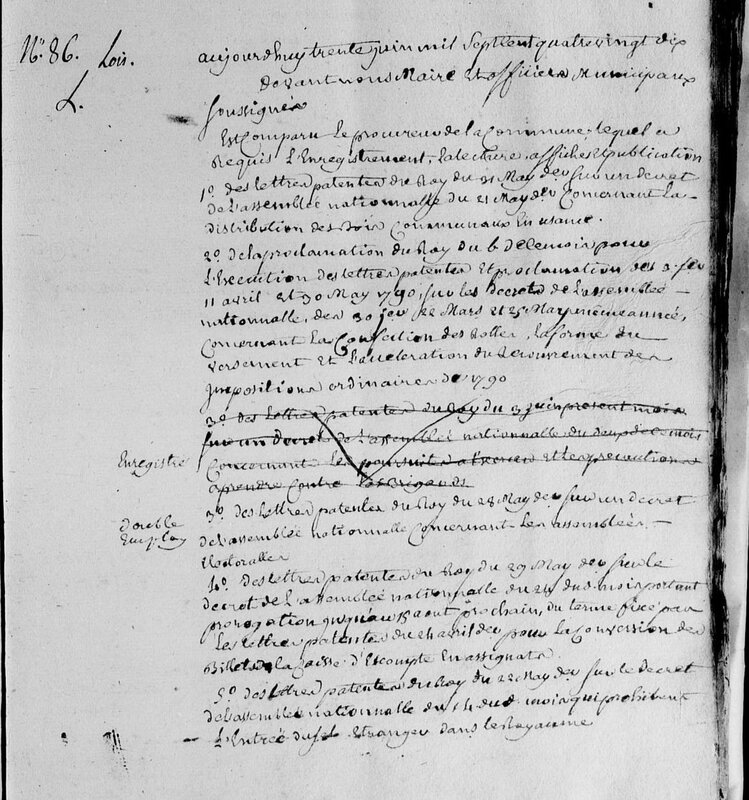 N.° 86. Lois.
L.
aujourd'huy trente juin mil Septcent quatre vingt dix
devant nous Maire et officiers Municipaux
soussignés
Est Comparu Le procureur de la Commune, lequel a
Requis L'Enregistrement, la lecture, affiches et publication
1.° des lettres patentes du Roy du 31 May der sur un decret
de L'assemblée nationnalle du 21 May der Concernant La
distribution des Bois Communaux En usance.
2.° de la proclamation du Roy du 6 de ce mois pour
L'Execution des lettres patentes Et proclamation des 3 fev
11 avril et 30 May 1790, sur les Decrets de L'assemblée
nationnalle, des 30 jer 22 Mars et 25 May même année,
Concernant La Confection des Rolles, la forme du
versement et L'acceleration du Recouvrement des
Impositions ordinaires de 1790
3.° des Lettres patentes du Roy du 3 juin present mois
sur un Decret de L'assemblée nationnalle du deux de ce mois
Enregistré
Concernant les poursuites a Exercer et les precautions
a prendre Contre les Brigands
double
Employ
3.° des Lettres patentes du Roy du 28 May der sur un decret
de L'assemblée nationnalle Concernant Les assemblées
Electoralles
4.° des Lettres patentes du Roy du 29 May der sur le
decret de L'assemblée nationnalle du 24 dud. mois portant
prorogation jusqu'au 15 aout prochain, du terme fixé par
Les lettres patentes du 24 avril der pour La Conversion des
Billets de la Caisse d'Escompte En assignats
5.° des lettres patentes du Roy du 22 May der sur le Decret
de L'assemblée nationnalle du 14 dud. mois qui prohibent
L'Entrée du sel Etranger dans le Royaume